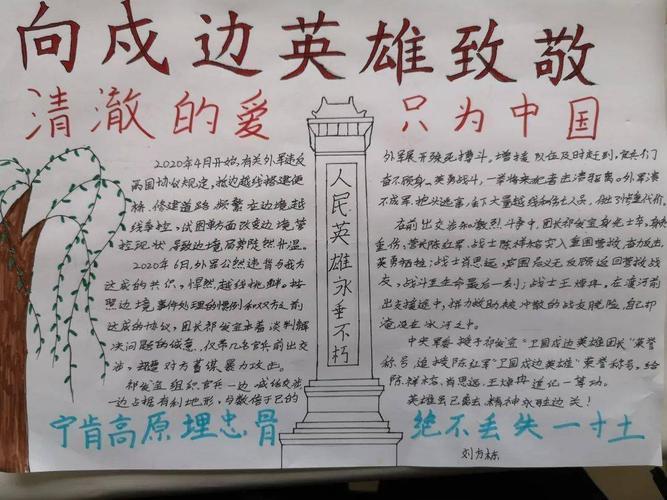 向戍边英雄致敬
清澈的爱 只为中国
2020年4月开始,有关外军违反
两国协议规定,抵边越线搭建便
桥、修建道路,频繁在边境越
线争控,试图单方面改变边境管
控现状,导致边境局势陡然升温。
2020年6月,外军公然违背与我方
达成的共识,悍然越线挑衅。按
照边境事件处理的惯例和双方之前
达成的协议,团长祁发宝本着谈判解
决问题的诚意,仅带几名官兵前出交
涉,却遭对方蓄谋暴力攻击。
祁发宝组织官兵一边
一边占据有利地形,与数倍于已的
人民英雄永垂不朽
外军展开殊死搏斗。增援队伍及时赶到,官兵们
奋不顾身、英勇战斗,一举将来犯者击溃驱离。外军溃
不成军,抱头逃窜,丢下大量越线和伤亡人员,付出惨重代价。
在前出交涉和激烈斗争中,团长祁发宝身先士卒,身负
重伤;营长陈红军、战士陈祥榕突入重围营救,奋力反击,
英勇牺牲;战士肖思远,突围后义无反顾返回营救战
友,战斗至生命最后一刻;战士王焯冉,在渡河前
出支援途中,拼力救助被冲散的战友脱险,自己却
淹没在冰河之中。
中央军委授予祁发宝“卫国戍边英雄团长”荣誉
称号,追授陈红军“卫国戍边英雄”荣誉称号,给
陈祥榕、肖思远、王焯冉追记一等功。
英雄虽已离去,精神永驻边关!
宁肯高原埋忠骨 绝不丢失一寸土
刘方栋